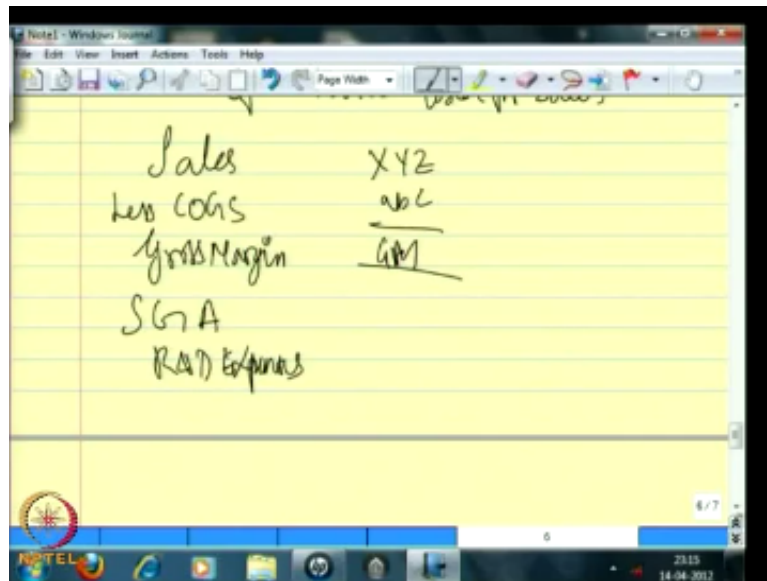 Note1 - Windows Journal
File Edit View Insert Actions Tools Help
Page Width
Sales XYZ
Less COGS abc
Gross Margin GM
SGA
R&D Expenses
6/7
6
NPTEL
23:15
14-04-2012